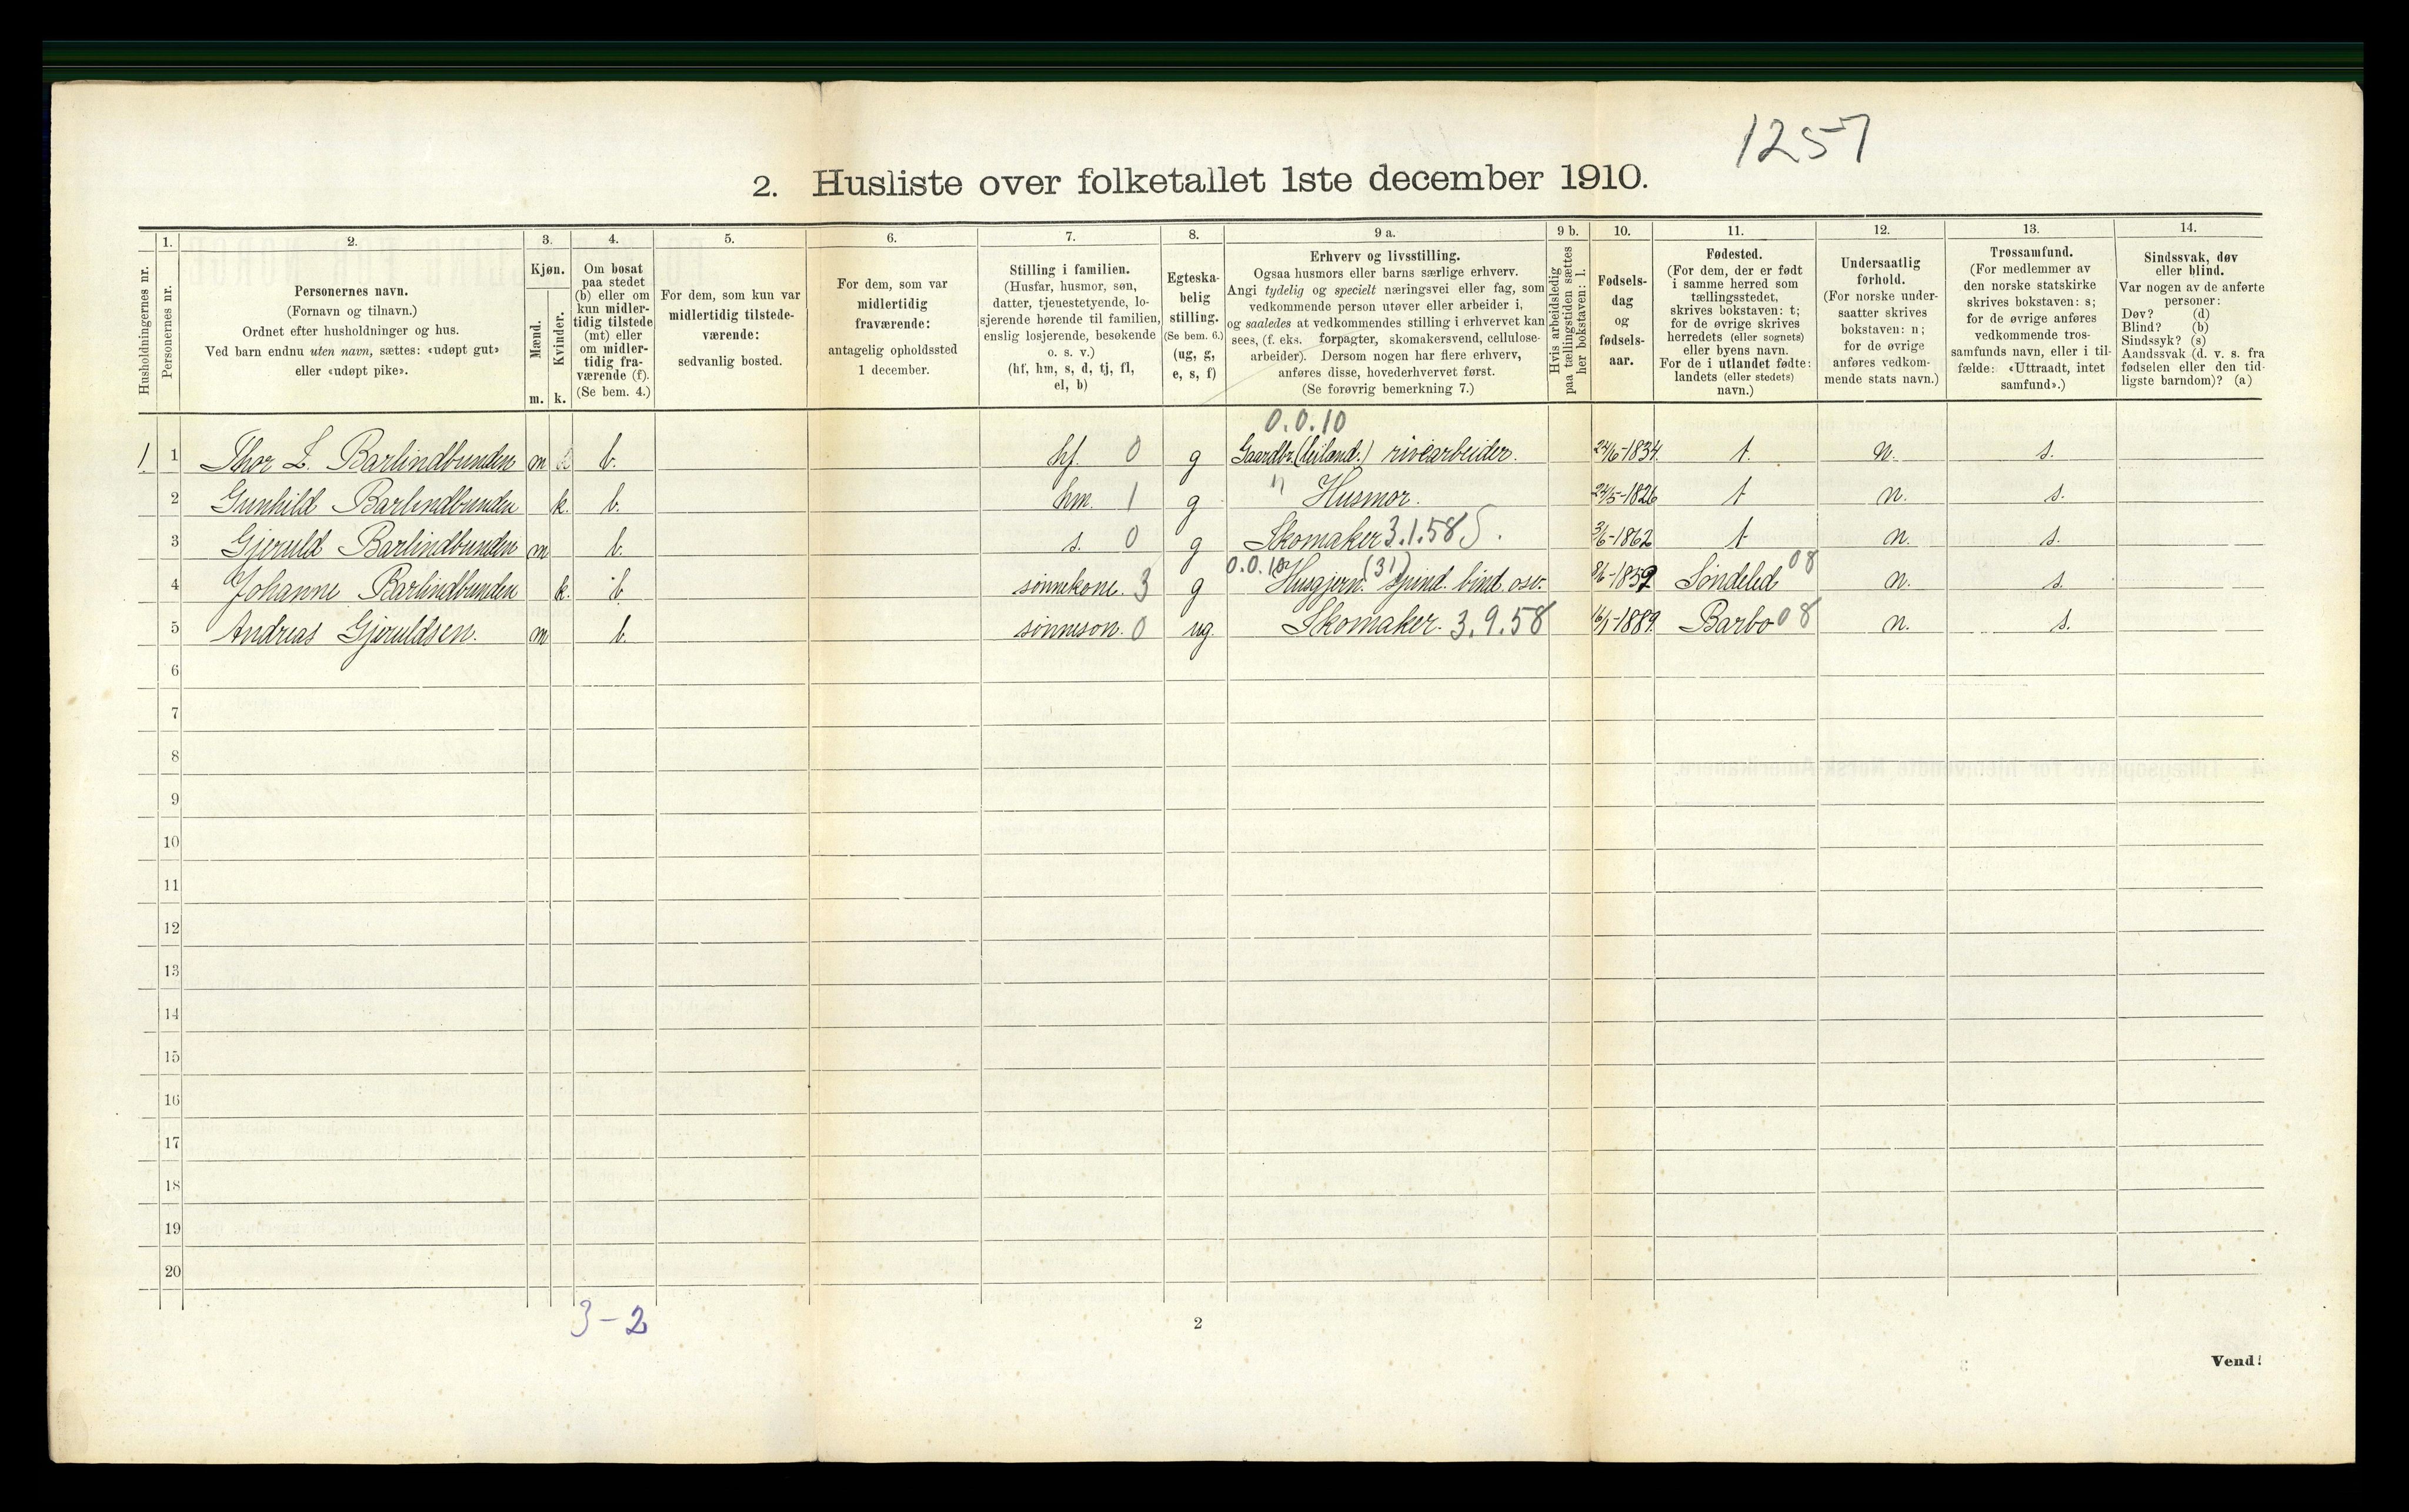 1257
2. Husliste over folketallet 1ste december 1910.
Husholdningernes nr.
1.
Personernes nr.
2.
Personernes navn.
(Fornavn og tilnavn.)
Ordnet efter husholdninger og hus.
Ved barn endnu uten navn, sættes: «udøpt gut»
eller «udøpt pike».
3.
Kjøn.
Mænd.
Kvinder.
m. k.
4.
Om bosat
paa stedet
(b) eller om
kun midler-
tidig tilstede
(mt) eller
om midler-
tidig fra-
værende (f).
(Se bem. 4.)
5.
For dem, som kun var
midlertidig tilstede-
værende:
sedvanlig bosted.
6.
For dem, som var
midlertidig
fraværende:
antagelig opholdssted
1 december.
7.
Stilling i familien.
(Husfar, husmor, søn,
datter, tjenestetyende, lo-
sjerende hørende til familien,
enslig losjerende, besøkende
o. s. v.)
(hf, hm, s, d, tj, fl,
el, b)
8.
Egteska-
belig
stilling.
(Se bem. 6.)
(ug, g,
e, s, f)
9 a.
Erhverv og livsstilling.
Ogsaa husmors eller barns særlige erhverv.
Angi tydelig og specielt næringsvei eller fag, som
vedkommende person utøver eller arbeider i,
og saaledes at vedkommendes stilling i erhvervet kan
sees, (f. eks. forpagter, skomakersvend, cellulose-
arbeider). Dersom nogen har flere erhverv,
anføres disse, hovederhvervet først.
(Se forøvrig bemerkning 7.)
9 b.
Hvis arbeidsledig
paa tællingstiden sættes
her bokstaven: l.
10.
Fødsels-
dag
og
fødsels-
aar.
11.
Fødested.
(For dem, der er født
i samme herred som
tællingsstedet,
skrives bokstaven: t;
for de øvrige skrives
herredets (eller sognets)
eller byens navn.
For de i utlandet fødte:
landets (eller stedets)
navn.)
12.
Undersaatlig
forhold.
(For norske under-
saatter skrives
bokstaven: n;
for de øvrige
anføres vedkom-
mende stats navn.)
13.
Trossamfund.
(For medlemmer av
den norske statskirke
skrives bokstaven: s;
for de øvrige anføres
vedkommende tros-
samfunds navn, eller i til-
fælde: «Uttraadt, intet
samfund».)
14.
Sindssvak, døv
eller blind.
Var nogen av de anførte
personer:
Døv? (d)
Blind? (b)
Sindssyk? (s)
Aandssvak (d. v. s. fra
fødselen eller den tid-
ligste barndom)? (a)
0.0.10
1 1 Thor L. Barlindbunden m b. hf. 0 g Gaardbr. (leiland.) rivearbeider. 24/6-1834. t. n. s.
2 Gunhild Barlindbunden k. b. hm. 1 g " Husmor. 24/5-1826 t n. s.
3 Gjeruld Barlindbunden m b. s. 0 g Skomaker 3.1.58 S. 3/6-1862 t n. s.
0.0.10 (31) 08
4 Johanne Barlindbunden k. b sønnekone. 3 g Husgjern. spind. bind. osv. 8/6-1859 Søndeled n. s.
5 Andreas Gjeruldsen. m b. sønneson. 0 ug. Skomaker. 3.9.58 16/1-1889. Barbo 08 n. s.
6
7
8
9
10
11
12
13
14
15
16
17
18
19
20
3-2
2
Vend!